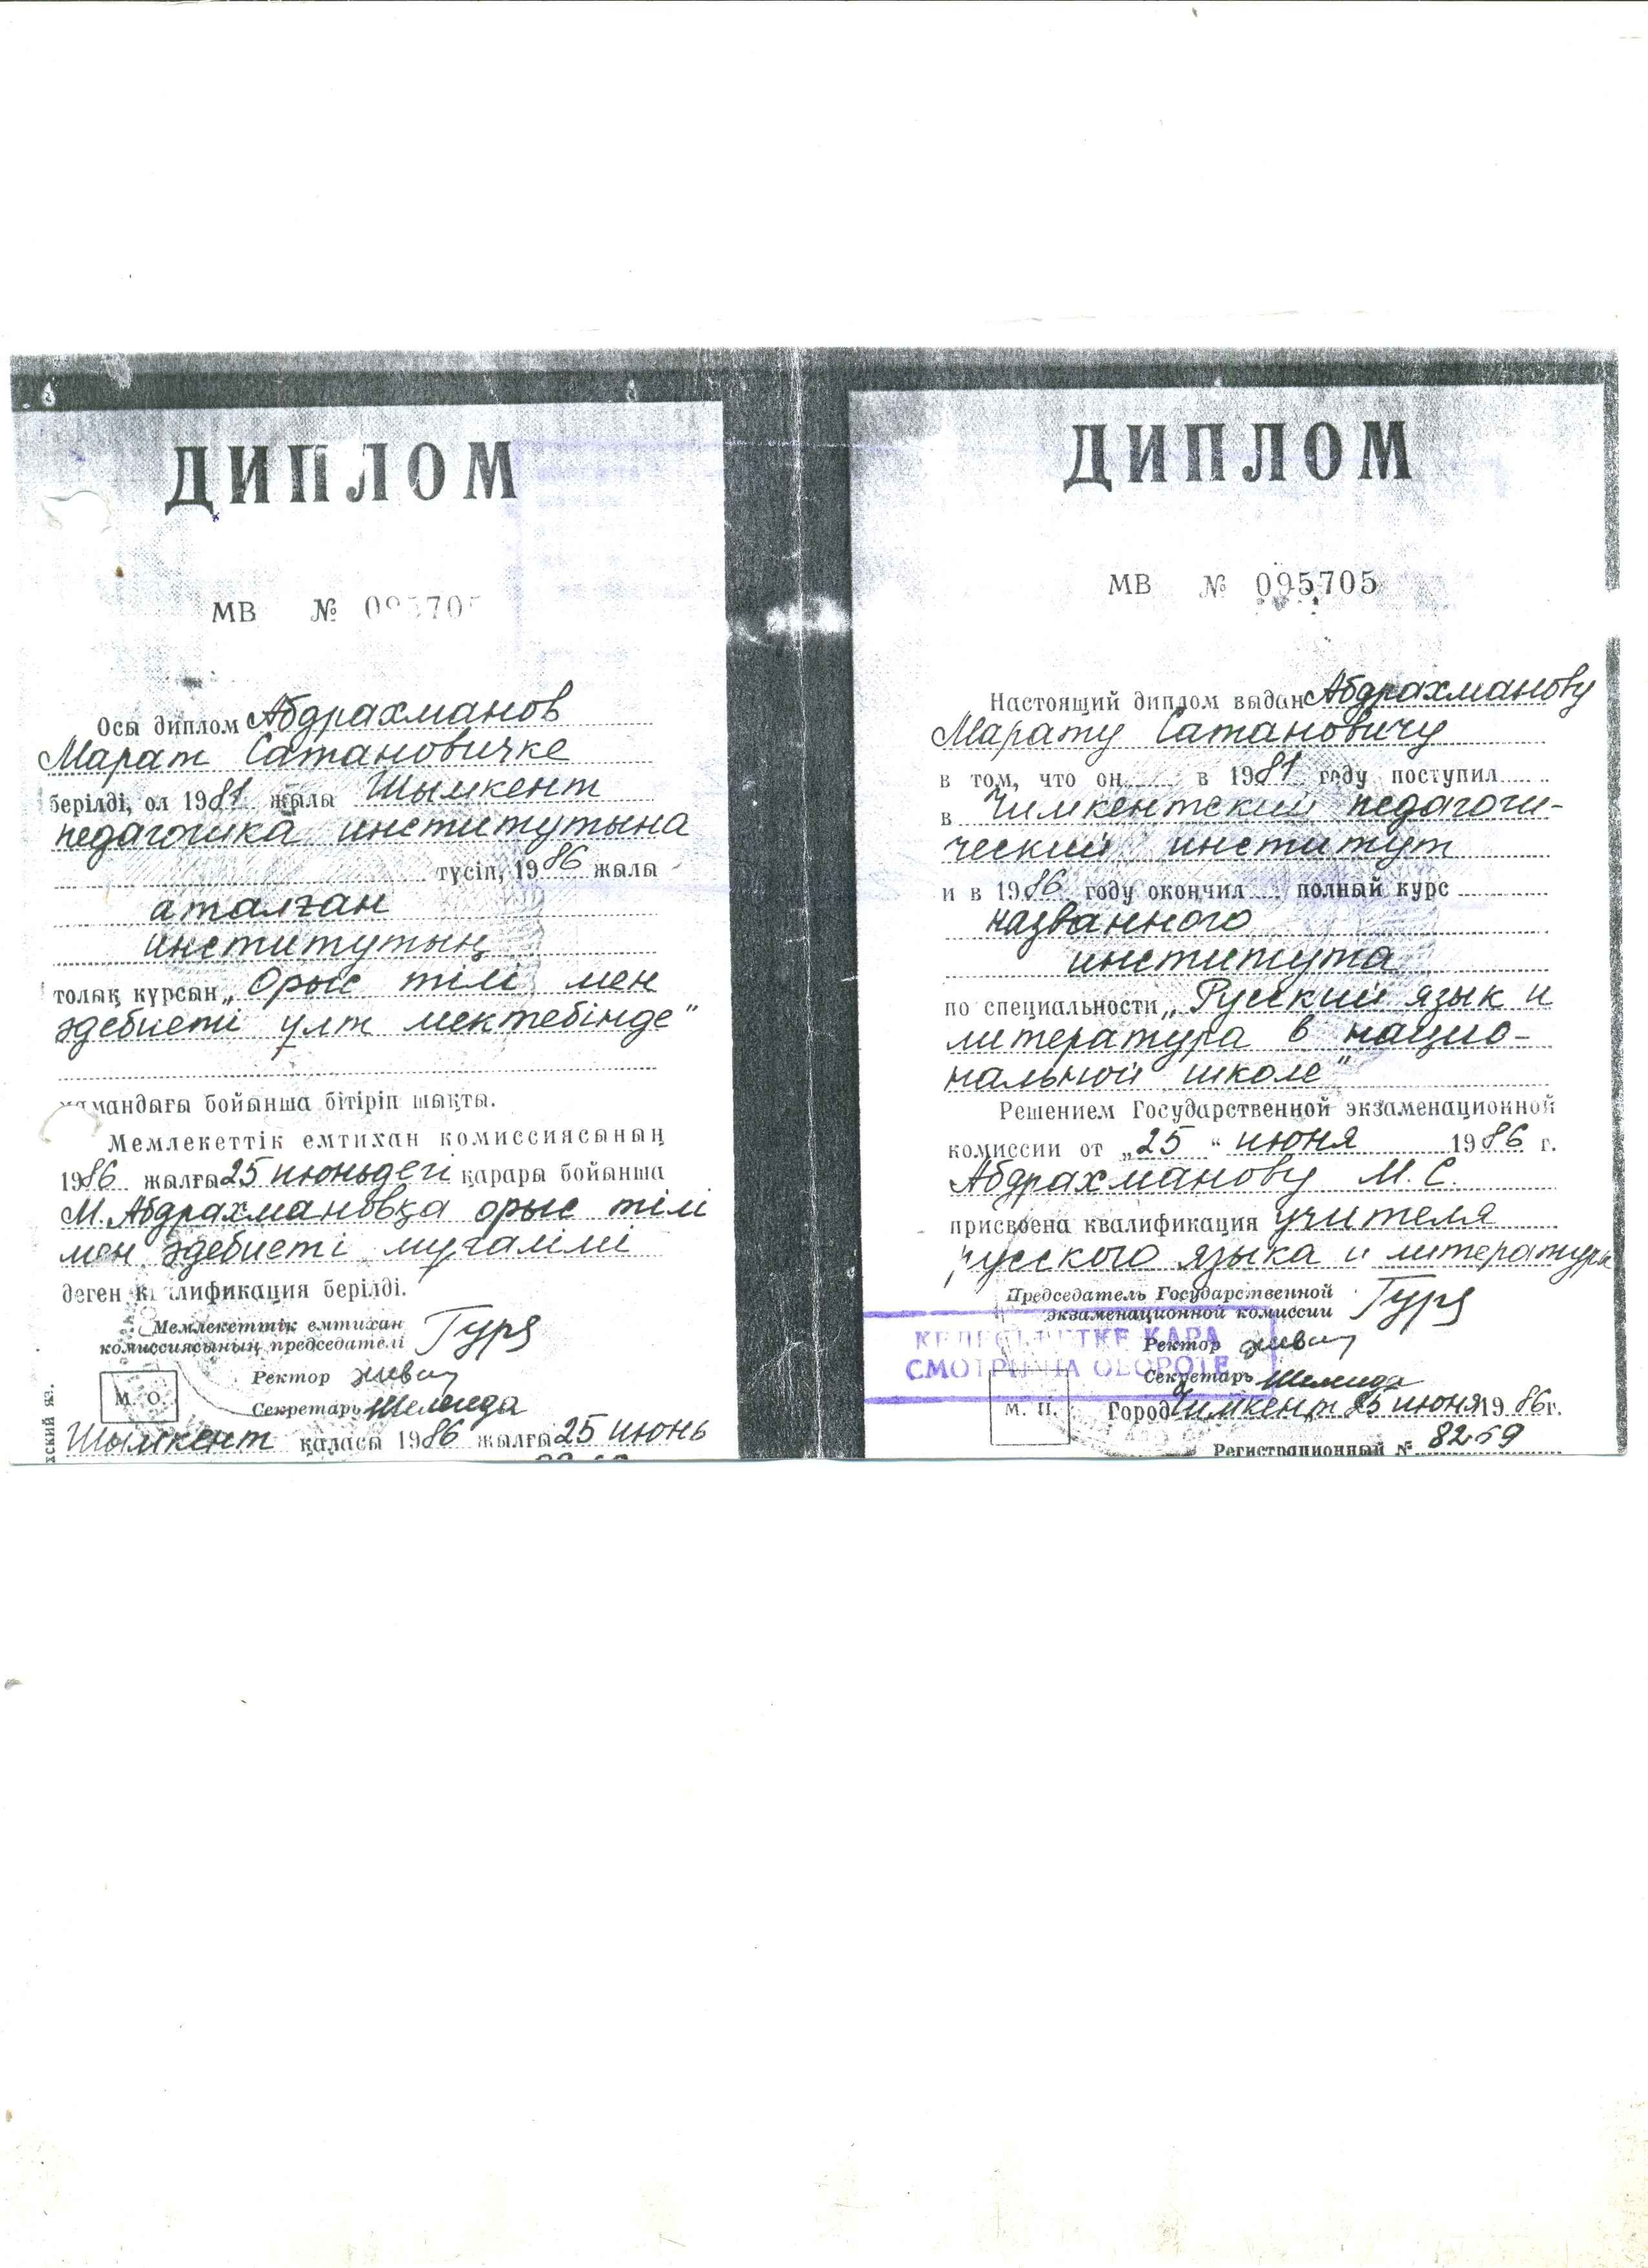 ДИПЛОМ
МВ № 095705
Осы диплом Абдрахманов
Марат Сатановичке
берілді, ол 1981 жылы Шымкент
педагогика институтына
түсіп, 1986 жылы
аталған
институтың
толық курсын „Орыс тілі мен
әдебиеті ұлт мектебінде"
мамандығы бойынша бітіріп шықты.
Мемлекеттік емтихан комиссиясының
1986 жылғы 25 июньдегі қарары бойынша
М. Абдрахмановқа орыс тілі
мен әдебиеті мұғалімі
деген квалификация берілді.
Мемлекеттік емтихан
комиссиясының председателі
Ректор
Секретарь
М. О.
Шымкент қаласы 1986 жылғы 25 июнь
ДИПЛОМ
МВ № 095705
Настоящий диплом выдан Абдрахманову
Марату Сатановичу
в том, что он в 1981 году поступил
в Чимкентский педагоги-
ческий институт
и в 1986 году окончил полный курс
названного
института
по специальности „Русский язык и
литература в нацио-
нальной школе"
Решением Государственной экзаменационной
комиссии от „25" июня 1986 г.
Абдрахманову М. С.
присвоена квалификация учителя
русского языка и литературы
Председатель Государственной
экзаменационной комиссии
Ректор
КЕЛЕСІ БЕТКЕ ҚАРА
СМОТРИ НА ОБОРОТЕ
Секретарь
М. П.
Город Чимкент 25 июня 1986 г.
Регистрационный № 8259